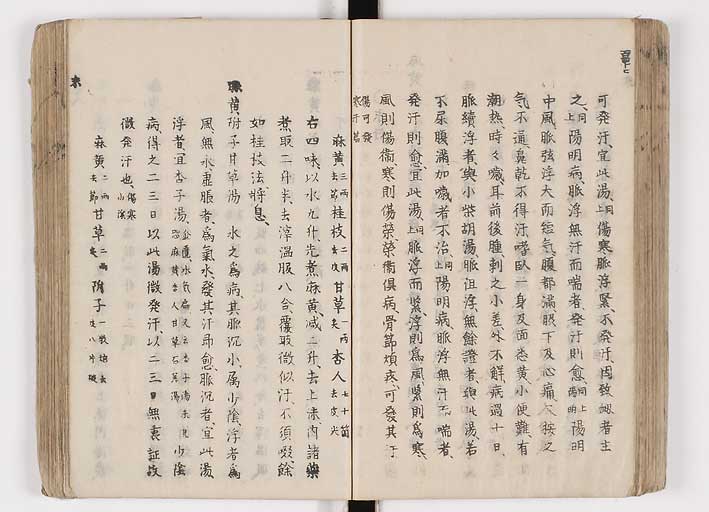 可発汗、宜此湯、同上傷寒脈浮緊、不発汗、因致衂者主
之、同上陽明病脈浮無汗而喘者、発汗則愈、同上陽明陽明
中風、脈弦浮大而短気、腹都満脇下及心痛、久按之
気不通、鼻乾不得汗、嗜臥、一身及面悉黄、小便難、有
潮熱、時々噦、耳前後腫、刺之小差、外不解、病過十日、
脈續浮者、与小柴胡湯、脈但浮、無餘證者、与此湯、若
不尿、腹満加噦者不治、同上陽明病、脈浮無汗而喘者、
発汗則愈、宜此湯、同上脈浮而緊、浮則為風、緊則為寒、
風則傷衛、寒則傷榮、榮衛俱病、骨節煩疼、可発其汗、
傷寒可発汗
麻黄三両去節桂枝二両去皮甘草一両炙杏人七十箇去皮尖
右四味、以水九升、先煮麻黄、減二升、去上沫、内諸藥
煮取二升半、去滓、温服八合、覆取微似汗、不須啜餘
如桂枝法将息、
麻黄附子甘草湯 水之為病、其脈沉小、属少陰、浮者為
風、無水虚脹者、為気水、発其汗即愈、脈沉者、宜此湯、
浮者、宜杏子湯、少陰
病、得之二三日、以此湯微発汗、以二三日無裏証、故
微発汗也、傷寒少陰
麻黄二両去節甘草二両炙附子一枚炮去皮八片破